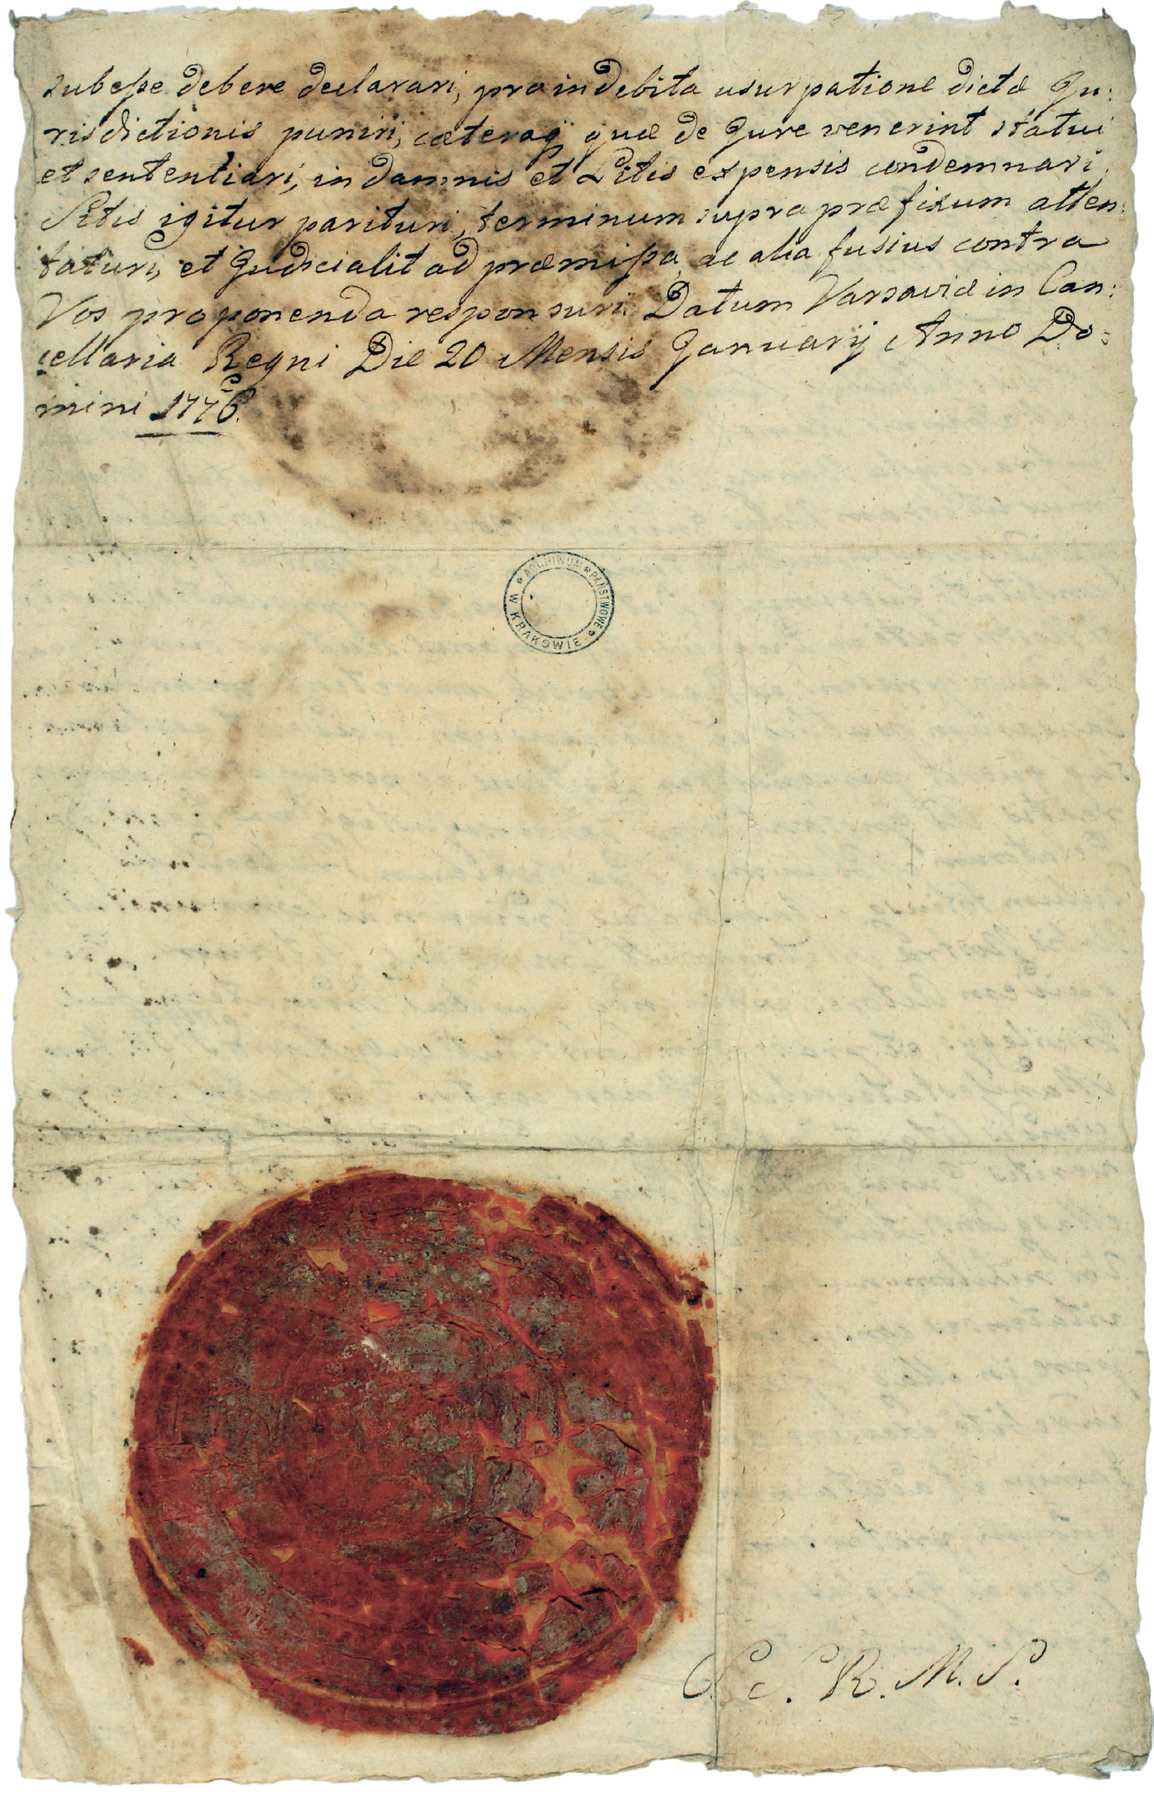 subesse debere declarari, pro indebita usurpatione dictæ Ju:
risdictionis puniri, cæteraq̃ quæ de Jure venerint statui
et sententiari, in damnis et Litis expensis condemnari.
Sitis igitur parituri, terminum supra præfixum atten:
taturi, et Judicialit ad præmissa, ac alia fusius contra
Vos proponenda responsuri. Datum Varsaviæ in Can:
cellaria Regni Die 20 Mensis Januarij Anno Do:
mini 1776.
ARCHIWUM PAŃSTWOWE W KRAKOWIE
S. R. M. S.